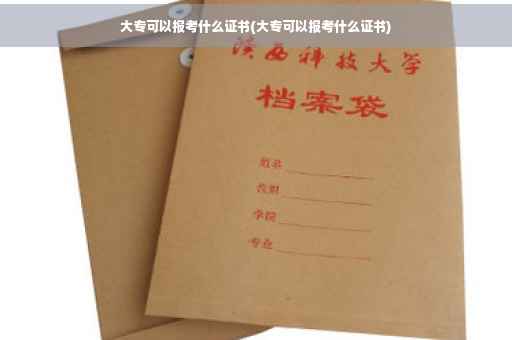 大专可以报考什么证书(大专可以报考什么证书)
陕西科技大学
档案袋
姓名
学院
专业